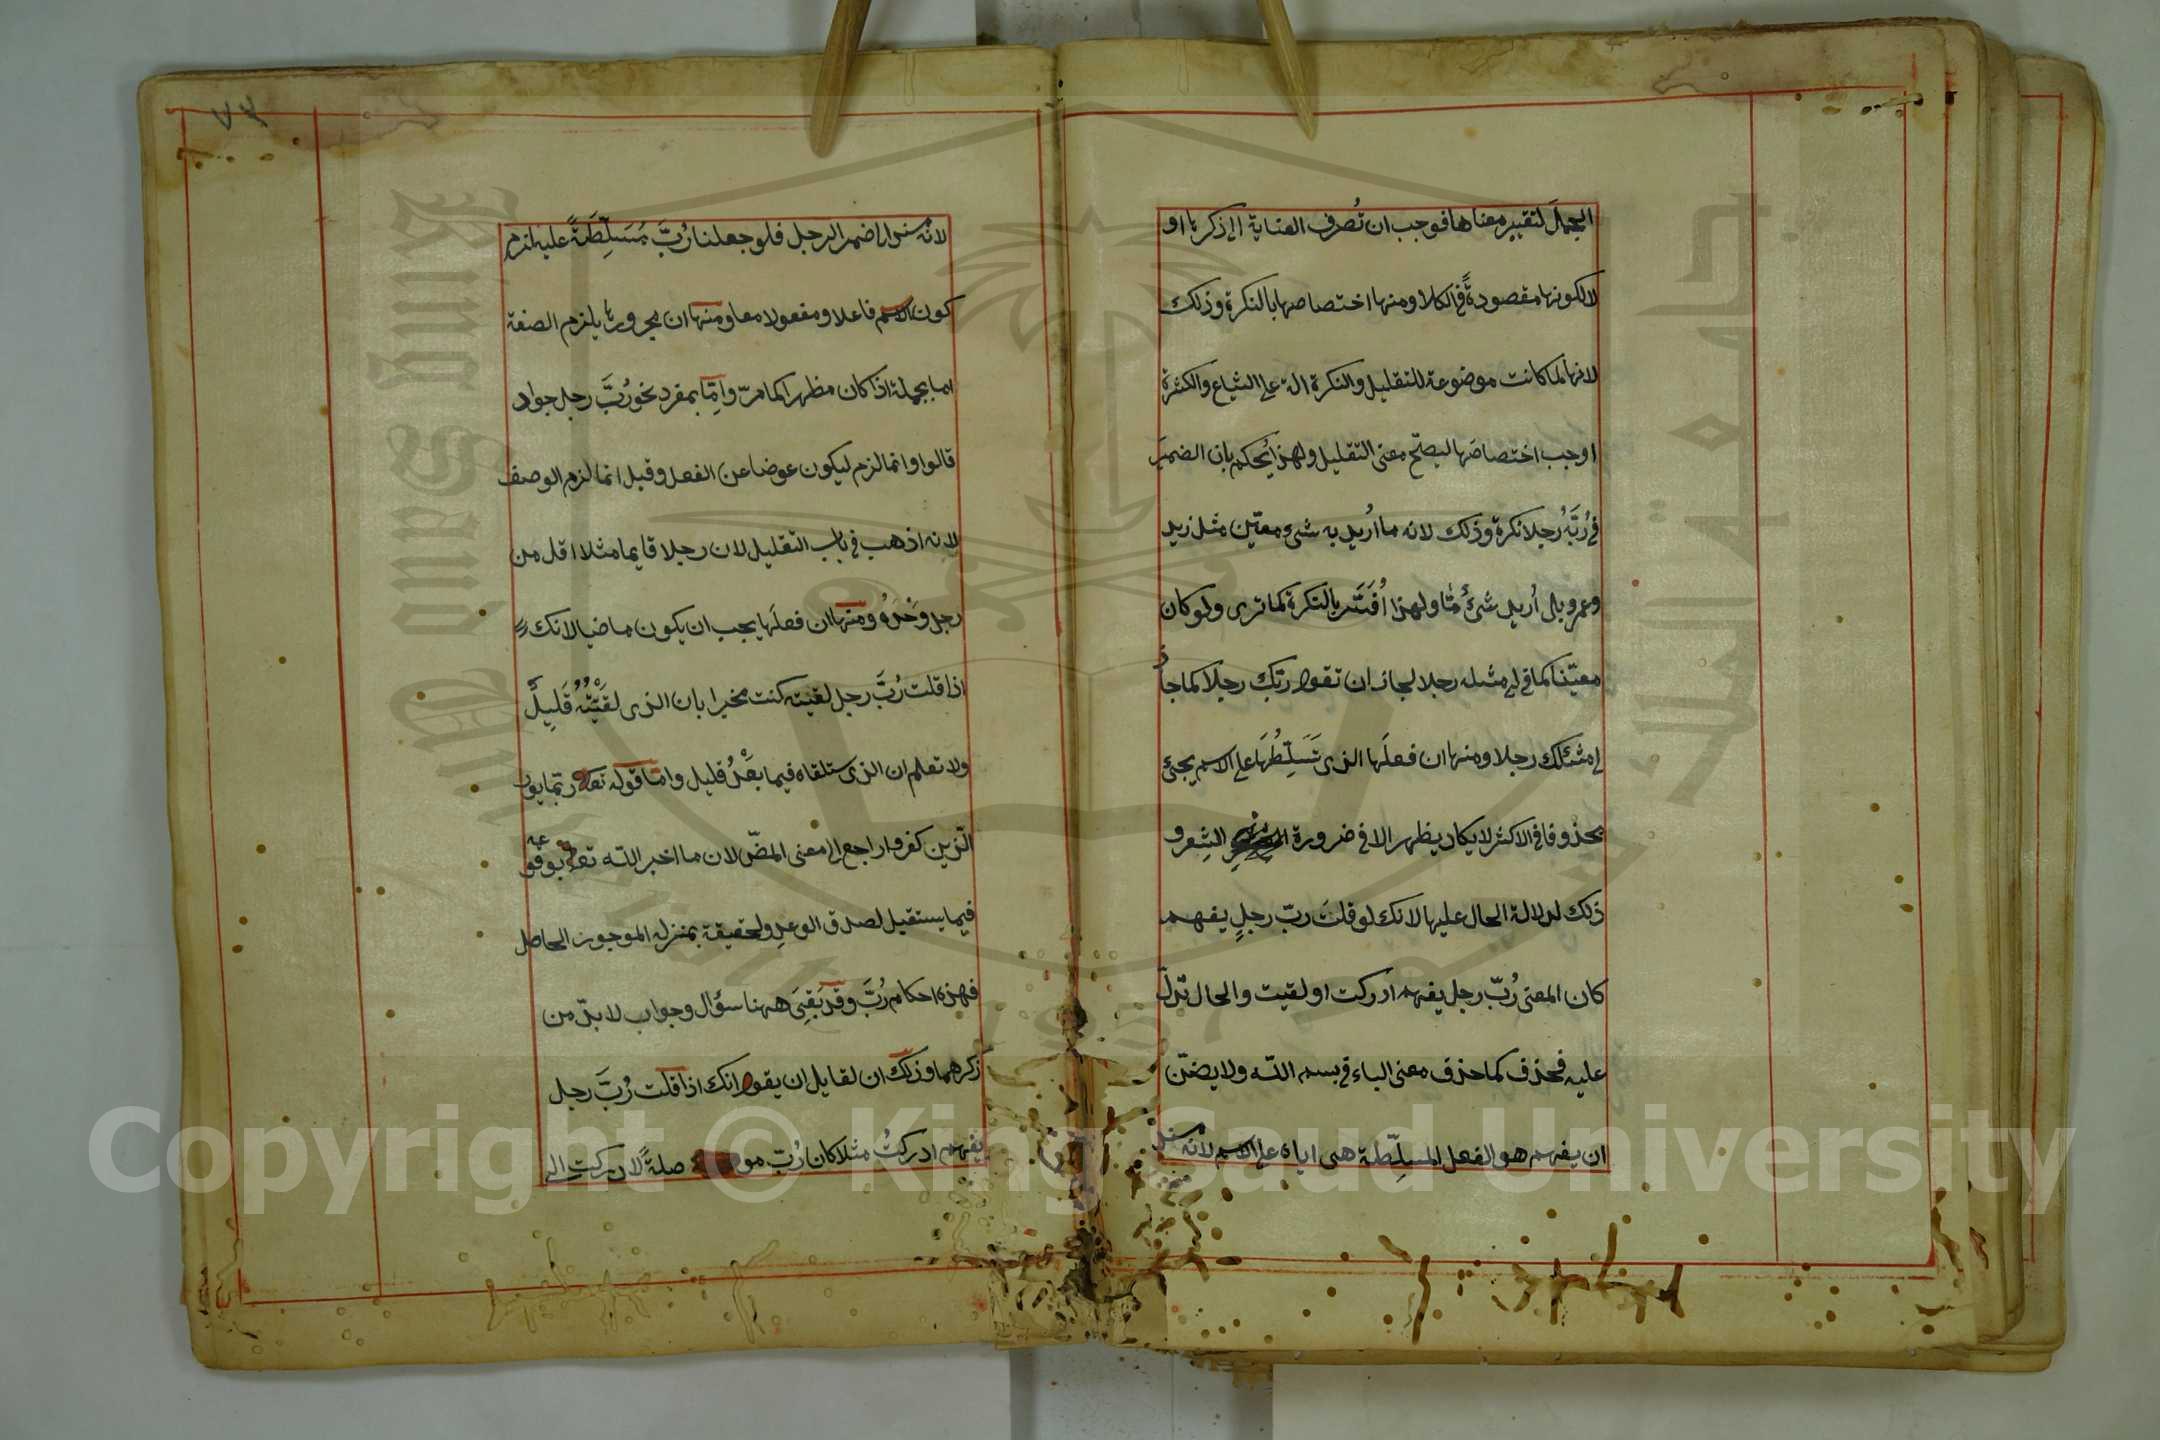 الجملَ لتغيير معناها فوجب ان تُصرف العناية الى ذكرها او
لا لكونها مقصودةً في الكلا ومنها اختصاصها بالنكرة وذلك
لانها لما كانت موضوعة للتقليل والنكرة الة على الشياع والكثرة
اوجب اختصاصَها ليصحّ معنى التقليل ولهذا يُحكم بان الضميرَ
في رُبَّهُ رجلا نكرة وذلك لانه ما اُريد به شيء معيّن مثل زيد
وعمرو بل اُريد شيءٌ مّا ولهذا اُفسّر بالنكرة كما ترى ولو كان
معيّنا كما في لى مثله رجلا لجاز ان تقول ربّك رجلا كما جاز
لى مثلك رجلا ومنها ان فعلَها الذى تَسَلِّطُهَا على الاسم يجئ
محذوفا في الاكثر لا يكاد يظهر الا في ضرورة الشِعر و
ذلك لدلالة الحال عليها لانك لو قلتَ ربّ رجلٍ يفهم
كان المعنى رُبّ رجل يفهم ادركت او لقيت والحال تدلّ
عليه فحذف كما حذف معنى الباء في بسم الله ولا يضنّ
ان يفهم هو الفعل المسلِّطة هى اياه على الاسم لانه
لانه اضمر الرجل فلو جعلنا رُبَّ مُسَلِّطَةً عليه لزم
كون الاسم فاعلا ومفعولا معا ومنها ان مجرورها يلزم الصفة
اما بجملة اذا كان مظهرا كما مرّ وامّا بمفرد نحو رُبَّ رجل جواد
قالوا وانما لزم ليكون عوضا عن الفعل وقيل انما لزم الوصف
لانه اذهب في باب التقليل لان رجلا قايما مثلا اقل من
رجل وَحْدَهُ ومنها ان فعلَها يجب ان يكون ماضيا لانك
اذا قلت رُبَّ رجل لقيته كنت مخبرا بان الذى لقيْتُهُ قَلِيلٌ
ولا تعلم ان الذى ستلقاه فيما بعْدُ قليل وامّا قوله تعالى ربّما يود
الّذين كفروا راجع الى معنى المضىّ لان ما اخبر الله تعالى بوقوعه
فيما يستقبل لصدق الوعد ولحقيقة بمنزلة الموجود الحاصل
فهذه احكام رُبَّ وقد بَقِىَ ههنا سؤال وجواب لا بدّ من
ذكرهما وذلك ان لقايل ان يقول انك اذا قلت رُبَّ رجل
يفهم ادركتُ مثلا كان رُبّ صلةً لادركت الى